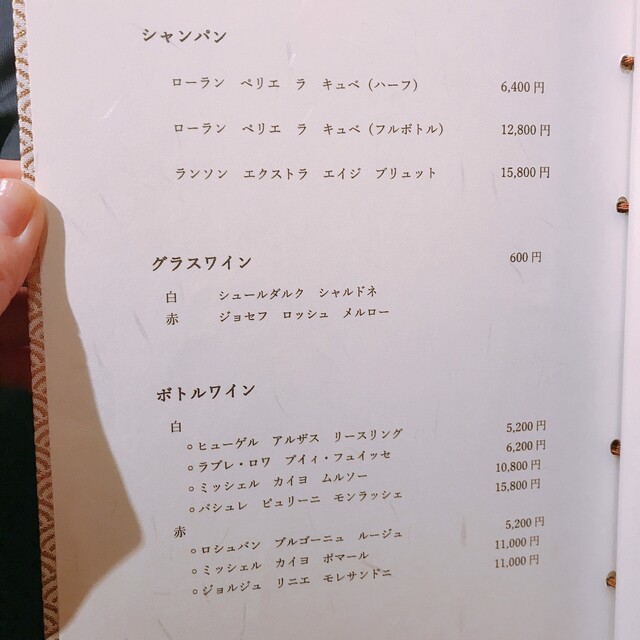 シャンパン
ローラン ペリエ ラ キュベ（ハーフ） 6,400円
ローラン ペリエ ラ キュベ（フルボトル） 12,800円
ランソン エクストラ エイジ ブリュット 15,800円
グラスワイン 600円
白 シュールダルク シャルドネ
赤 ジョセフ ロッシュ メルロー
ボトルワイン
白
○ヒューゲル アルザス リースリング 5,200円
○ラブレ・ロワ プイィ・フュイッセ 6,200円
○ミッシェル カイヨ ムルソー 10,800円
○バシュレ ピュリーニ モンラッシェ 15,800円
赤
○ロシュバン ブルゴーニュ ルージュ 5,200円
○ミッシェル カイヨ ポマール 11,000円
○ジョルジュ リニエ モレサンドニ 11,000円